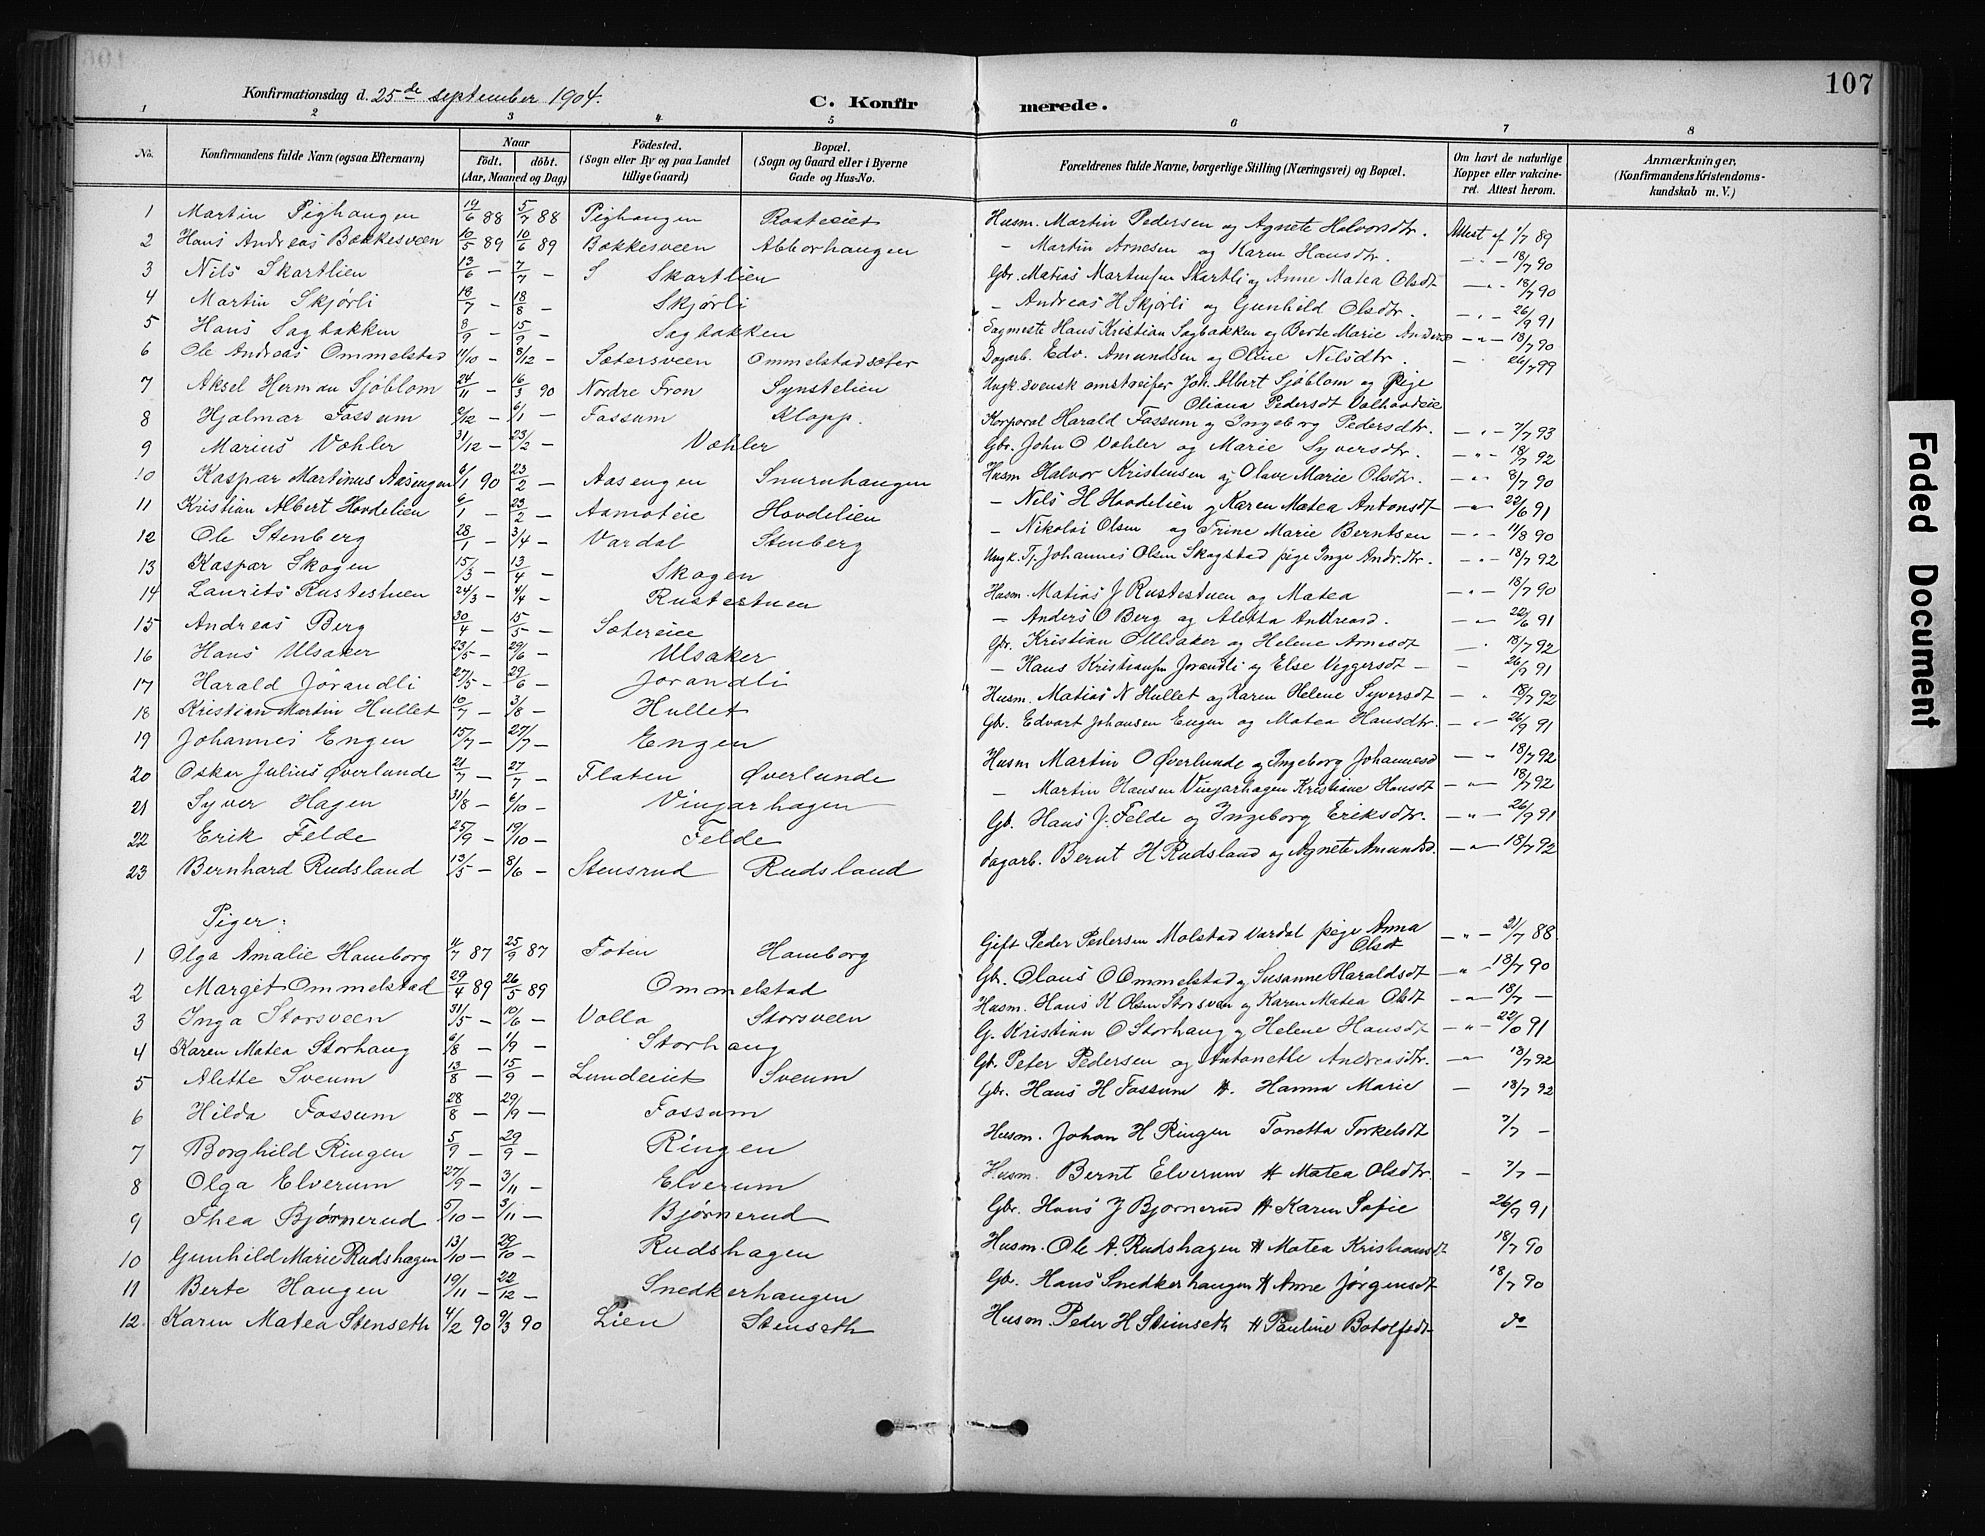 107
Konfirmationsdag d. 25de september 1904.
C. Konfirmerede.
1 2 3 4 5 6 7 8
No. Konfirmandens fulde Navn (ogsaa Efternavn) Naar født. døbt. (Aar, Maaned og Dag) Fødested. (Sogn eller By og paa Landet tillige Gaard) Bopæl. (Sogn og Gaard eller i Byerne Gade og Hus-No. Forældrenes fulde Navne, borgerlige Stilling (Næringsvei) og Bopæl. Om havt de naturlige Kopper eller vakcineret. Attest herom. Anmærkninger. (Konfirmandens Kristendomskundskab m. V.)
1 Martin Pighaugen 19/6 88 5/7 88 Pighaugen Rosteeiet Husm. Martin Pedersen og Agnete Halvorsdtr. Attest af 1/7 89
2 Hans Andreas Bækkesveen 10/5 89 10/6 89 Bækkesveen Abborhaugen – Martin Arnesen og Karen Hansdtr. – " – 18/7 90
3 Nils Skartlien 13/6 – 7/7 – S Skartlien Gbr. Matias Martinsen Skartli og Anne Matea Olsdt – " – 18/7 90
4 Martin Skjørli 18/7 – 18/8 – Skjørli – Andreas H Skjørli og Gunhild Olsdtr. – " – 26/9 91
5 Hans Sagbakken 8/9 – 15/9 – Sagbakken Sagmeste Hans Kristian Sagbakken og Berte Marie Anders – " – 18/7 90
6 Ole Andreas Ommelstad 11/10 – 8/12 – Sætersveen Ommelstadsæter Dagarb. Edv. Amundsen og Oline Nilsdtr. – 26/7 99
7 Aksel Herman Sjøblom 24/11 – 16/3 90 Nordre Fron Synstelien Ungk. svensk omstreifer Joh. Albert Sjøblom og Pige
Oliana Pedersdt
8 Hjalmar Fossum 2/12 – 6/1 – Fossum Klopp. Korporal Harald Fossum og Ingeborg Pedersdtr. – " – 7/7 93
9 Marius Væhler 31/12 – 23/2 – Væhler Gbr. John O Væhler og Marie Syversdtr. – " – 18/7 92
10 Kaspar Martinus Aasengen 6/1 90 23/2 – Aasengen Snuruhaugen Husm Halvor Kristensen og Olave Marie Olsdtr. – " – 8/7 90
11 Kristian Albert Hovdelien 6/1 – 23/2 – Aamoteie Hovdelien – Nils H Hovdelien og Karen Matea Antonsdt – " – 22/6 91
12 Ole Stenberg 28/1 – 3/4 – Vardal Stenberg – Nikolai Olsen og Trine Marie Berntsen – " – 11/8 90
13 Kaspar Skogen 15/3 – 13/4 – Skogen Ungk. Tj. Johannes Olsen Skogstad pige Inge Andr.dtr. – " – 18/7 92
14 Laurits Rustestuen 24/3 – 4/4 – Rustestuen Husm. Matias J Rustestuen og Matea – " – 18/7 90
15 Andreas Berg 30/4 – 15/5 – Sætereie – Anders O Berg og Aletta Andreasd. – " – 22/6 91
16 Hans Ulsaker 23/5 – 29/6 – Ulsaker Gbr. Kristian O Ulsaker og Helene Arnesdt – " 18/7 92
17 Harald Jørandli 27/5 – 29/6 – Jørandli – Hans Kristiansen Jørandli og Else Viggersdt – – 26/9 91
18 Kristian Martin Hullet 10/7 – 3/8 – Hullet Husm. Matias N Hullet og Karen Helene Syversdt – " 18/7 92
19 Johannes Engen 15/7 – 27/7 – Engen Gbr. Edvart Johansen Engen og Matea Hansdtr. – " – 26/9 91
20 Oskar Julius Øverlunde 21/7 – 27/7 – Flaten Øverlunde Husm Martin O Øverlunde og Ingeborg Johannesd – " 18/7 92
21 Syver Hagen 31/8 – 6/10 – Vinjarhagen – Martin Hansen Vinjarhagen Kristiane Hansdt – " – 18/7 92
22 Erik Felde 25/9 – 19/10 – Felde Gb. Hans J. Felde og Ingeborg Eriksdtr. – " – 26/9 91
23 Bernhard Rudsland 13/5 – 8/6 – Stensrud Rudsland Dagarb. Bernt H Rudsland og Agnete Amundsd. – " – 18/7 92
Piger:
1 Olga Amalie Hamborg 4/7 87 25/9 87 Toten Hamborg Gift Peder Pedersen Molstad Vardal pige Anna
Olsdt – " – 21/7 88
2 Margit Ommelstad 29/4 89 26/5 89 Ommelstad Gbr. Olaus O Ommelstad og Susanne Haraldsdt – " – 18/7 90
3 Inga Storsveen 31/5 – 10/6 – Volla Storsveen Husm. Hans K Olsen Storsveen og Karen Matea Olsdt – " – 18/7 –
4 Karen Matea Storhaug 6/8 – 1/9 – Storhaug G. Kristian O Storhaug og Helene Hansdt – " – 22/6 91
5 Alette Sveum 13/8 – 15/9 – Lundeeiet Sveum Gb. Peter Pedersen og Antonette Andreasdtr. – " – 18/7 92
6 Hilda Fossum 28/8 – 29/9 – Fossum Gbr. Hans H Fossum H. Hanna Marie – 18/7 92
7 Borghild Ringen 5/9 – 29/9 – Ringen Husm. Johan H Ringen Tonetta Torkelsdt 7/7 –
8 Olga Elverum 27/9 – 3/11 – Elverum Husm. Bernt Elverum H Matea Olsdtr. – 7/7 –
9 Thea Bjørnerud 5/10 – 3/11 – Bjørnerud Gbr. Hans J Bjørnerud H Karen Sofie 26/9 91
10 Gunhild Marie Rudshagen 13/10 – 29/10 – Rudshagen Husm. Ole A. Rudshagen H Matea Kristiansdt 18/7 90
11 Berte Haugen 19/11 – 22/12 – Snedkerhaugen Gb. Hans Snedkerhaugen H Anne Jørgensdt 18/7 90
12. Karen Matea Stenseth 4/2 90 9/3 90 Lien Stenseth Husm Peder H Stenseth H Pauline Botolfsdt do
Faded Document